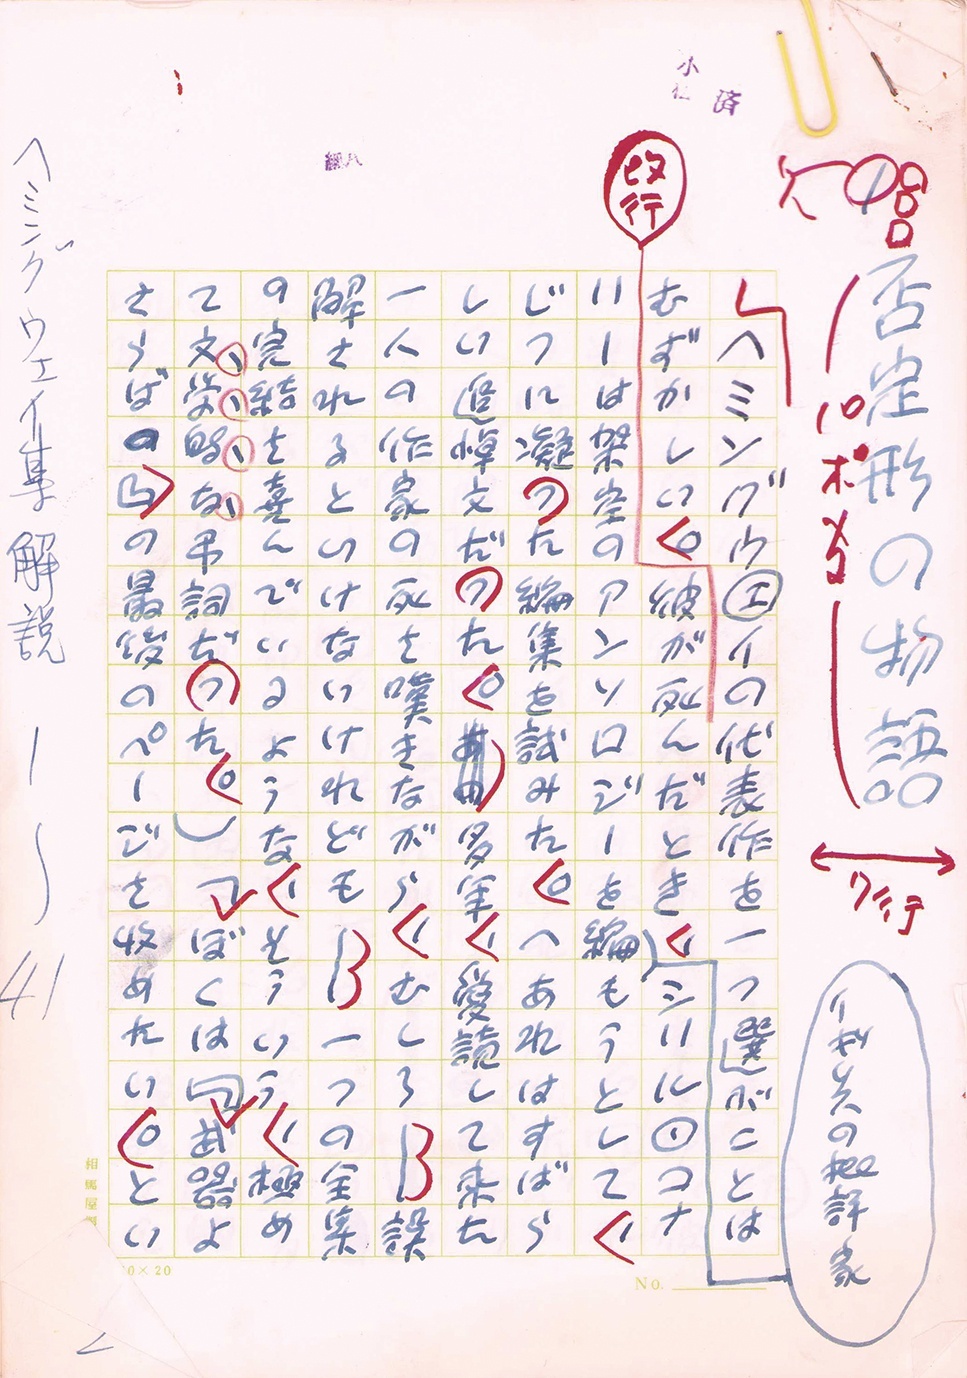 否定形の物語
イギリスの批評家
改行
済
ヘミングウェイの代表作を一つ選ぶことは
むずかしい。彼が死んだとき、シリル・コナ
リーは架空のアンソロジーを編もうとして、
じつに凝つた編集を試みた。(あれはすばら
しい追悼文だつた。多年、愛読して来た
一人の作家の死を嘆きながら、むしろ——誤
解されるといけないけれども——一つの全集
の完結を喜んでいるような、そういう、極め
て文学的な弔詞だつた。)ぼくは『武器よ
さらば』の最後のページを収めたい。とい
ヘミングウェイ集解説 1〜41
相馬屋
0×20
No.